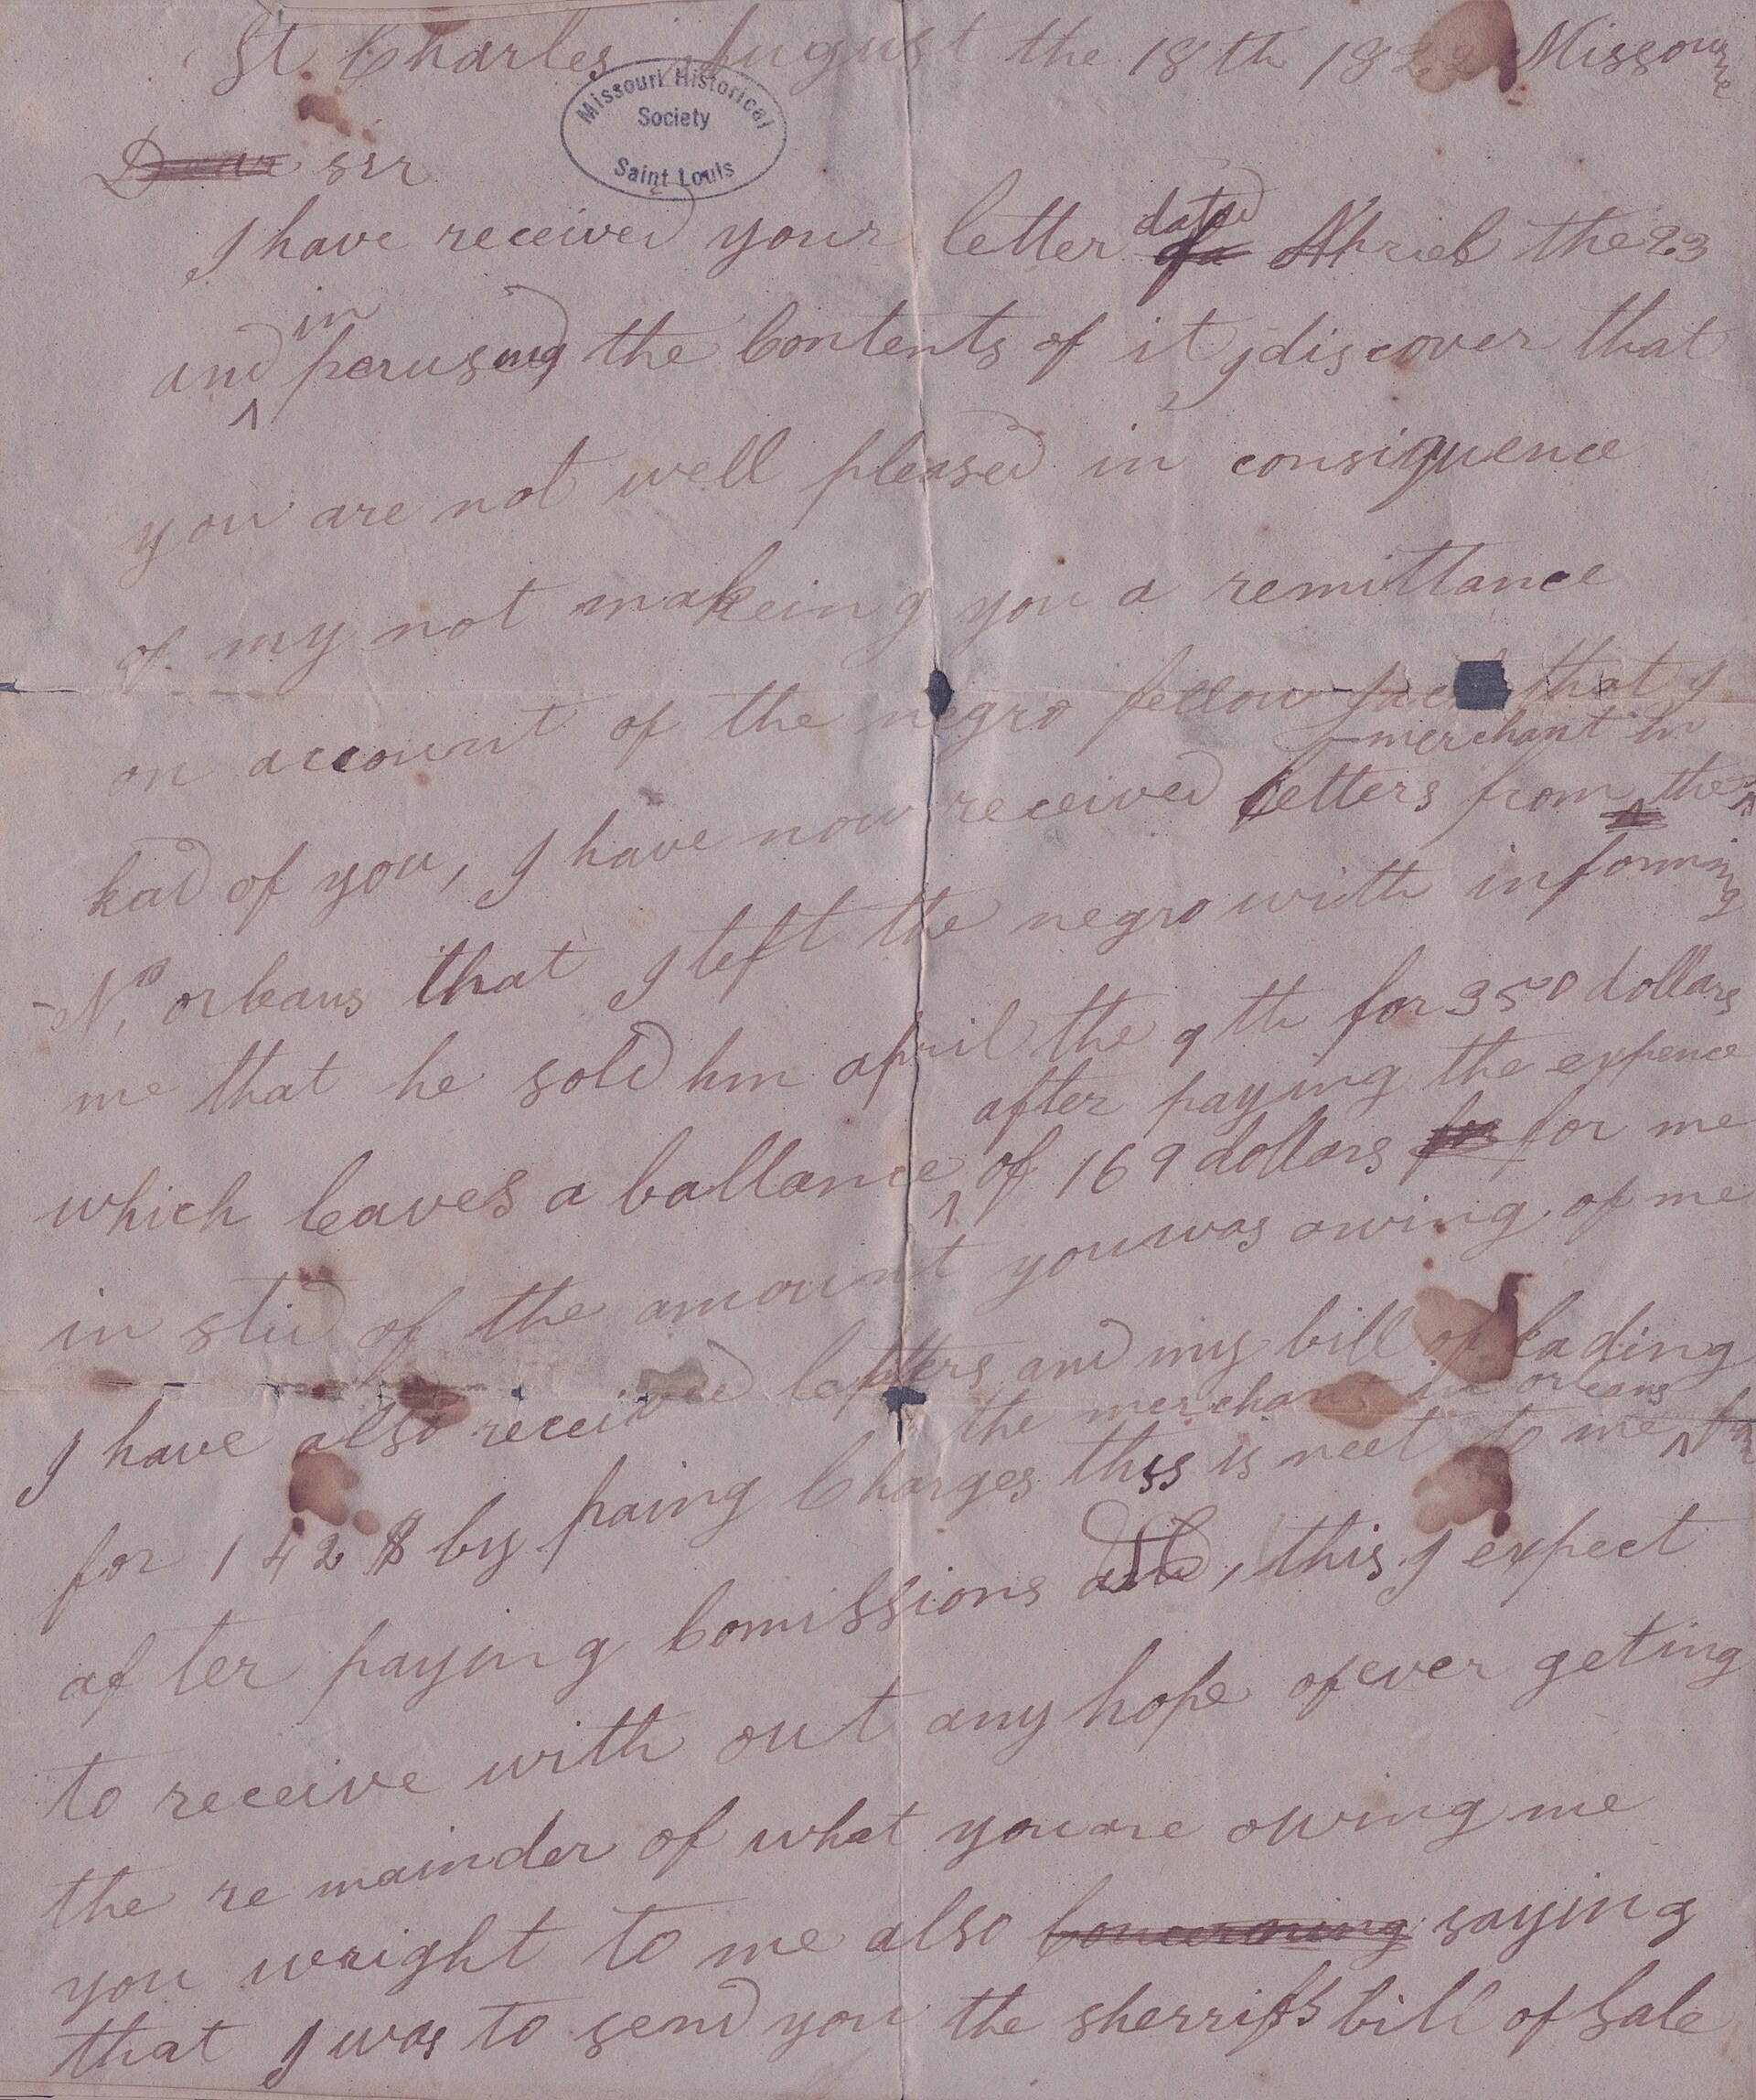 St. Charles August the 18th 1822 Missourie
Missouri Historical
Society
Saint Louis
Dear sir
I have received your letter dated Apriel the 23
and in peruseing the Contents of it, discover that
you are not well pleased in consiquence
of my not makeing you a remittance
on account of the negro fellow that I
merchant in
had of you, I have now received letters from the
No. orleans that I left the negro with informing
me that he sold him april the 9th for 350 dollars
after paying the expence
which leaves a ballance of 169 dollars for for me
in stid of the amount you was owing of me
I have also received letters and my bill of lading
the merchant in orleans
for 142 $ by paing Charges this is neet to me from
after paying Comissions, this I expect
to receive with out any hope of ever geting
the re mainder of what you are owing me
you wright to me also Concerning saying
that I was to send you the sherriffs bill of Sale